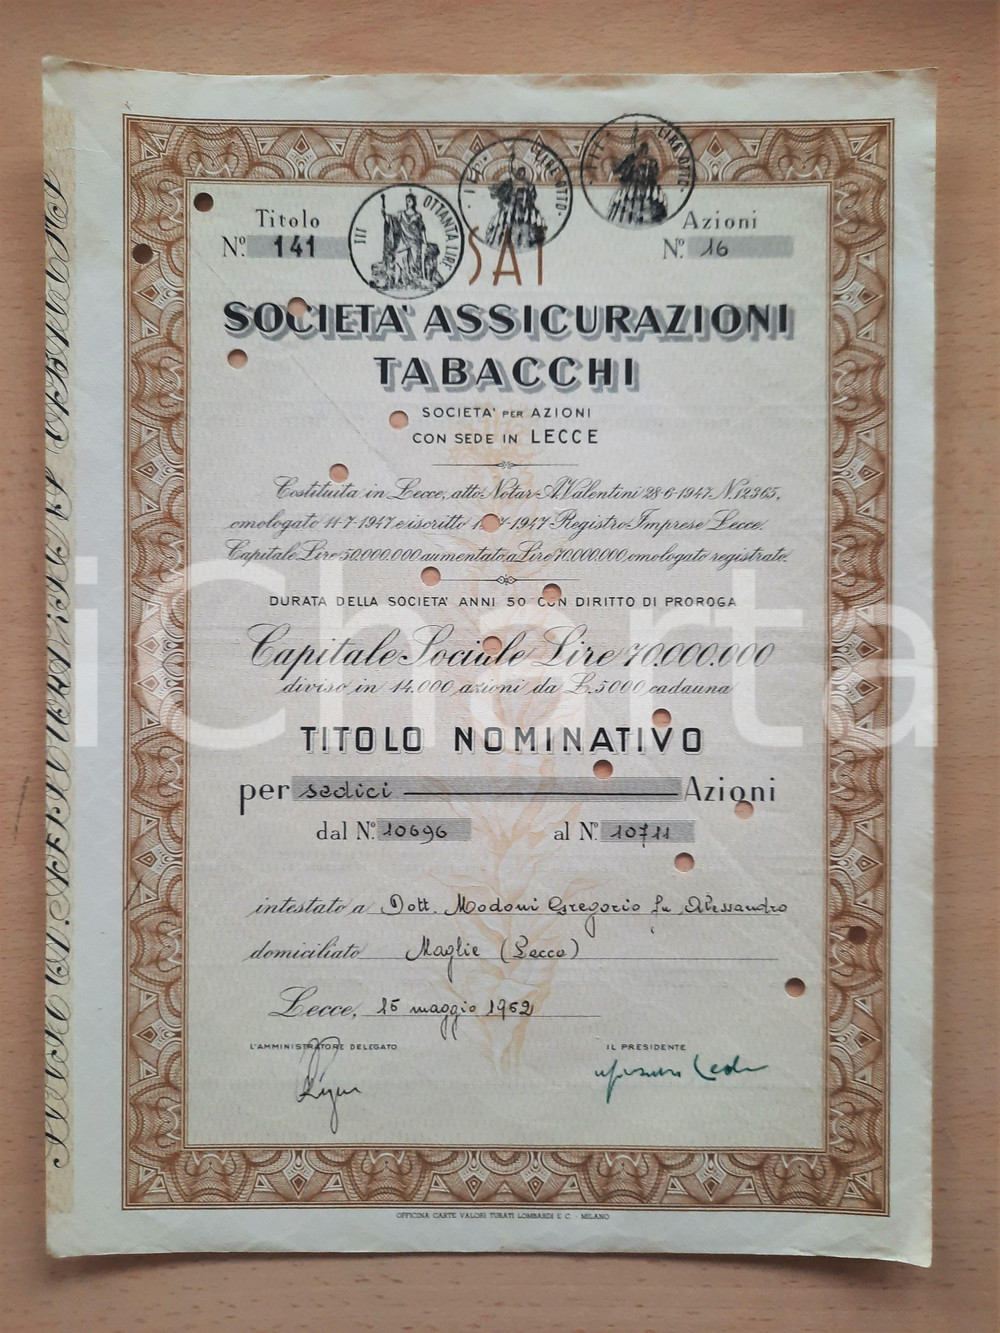 Titolo
Nº. 141
III OTTANTA LIRE
LIRE OTTO
III LIRE OTTO
Azioni
Nº. 16
SAT
SOCIETA' ASSICURAZIONI
TABACCHI
SOCIETA' PER AZIONI
CON SEDE IN LECCE
Costituita in Lecce, atto Notar A. Valentini 28-6-1947 N. 12365,
omologato 11-7-1947 e iscritto -1947 Registro Imprese Lecce.
Capitale Lire 50.000.000 aumentato a Lire 70.000.000 omologato registrato.
DURATA DELLA SOCIETA' ANNI 50 CON DIRITTO DI PROROGA
Capitale Sociale Lire 70.000.000
diviso in 14.000 azioni da L. 5000 cadauna
TITOLO NOMINATIVO
per sedici Azioni
dal Nº. 10696 al Nº. 10711
intestato a Dott. Modoni Gregorio fu Alessandro
domiciliato Maglie (Lecce)
Lecce, 15 maggio 1962
L'AMMINISTRATORE DELEGATO IL PRESIDENTE
OFFICINA CARTE VALORI TURATI LOMBARDI E C. - MILANO
iCharta